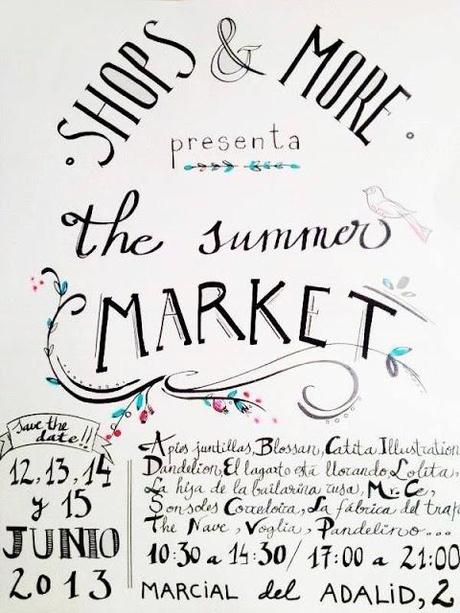 SHOPS & MORE
presenta
the summer
MARKET
save the
date!!
12, 13, 14
y 15
JUNIO
2013
Apies juntillas, Blossan, Catita Illustration
Dandelion, El lagarto está llorando, Lolita,
La hija de la bailarina rusa, Mr. Ce,
Sonsoles Corredoira, La fábrica del trap
The Nave, Voglia, Pandelino...
10:30 a 14:30/17:00 a 21:00
MARCIAL del ADALID, 2